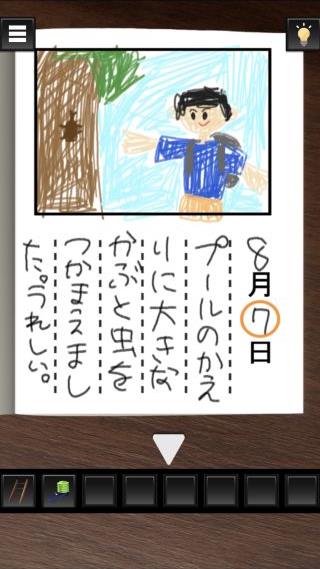 8月7日
プールのかえ
りに大きな
かぶと虫を
つかまえまし
た。うれしい。